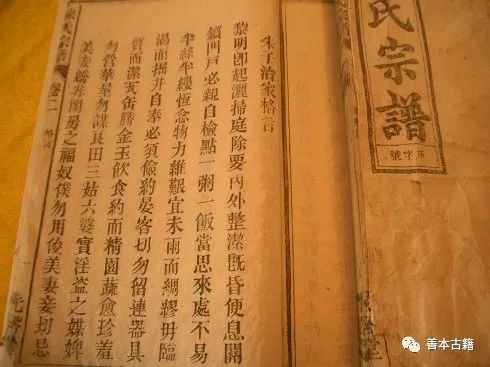 氏宗譜
字號
朱子治家格言
黎明卽起灑掃庭除要內外整潔旣昏便息關
鎖門戶必親自檢點一粥一飯當思來處不易
半絲半縷恆念物力維艱宜未雨而綢繆毋臨
渴而掘井自奉必須儉約晏客切勿留連器具
質而潔瓦缶勝金玉飲食約而精園蔬愈珍羞
勿營華屋勿謀良田三姑六婆實淫盗之媒婢
美妾嬌非閨房之福奴僕勿用俊美妻妾切忌
氏宗譜 卷二
善本古籍